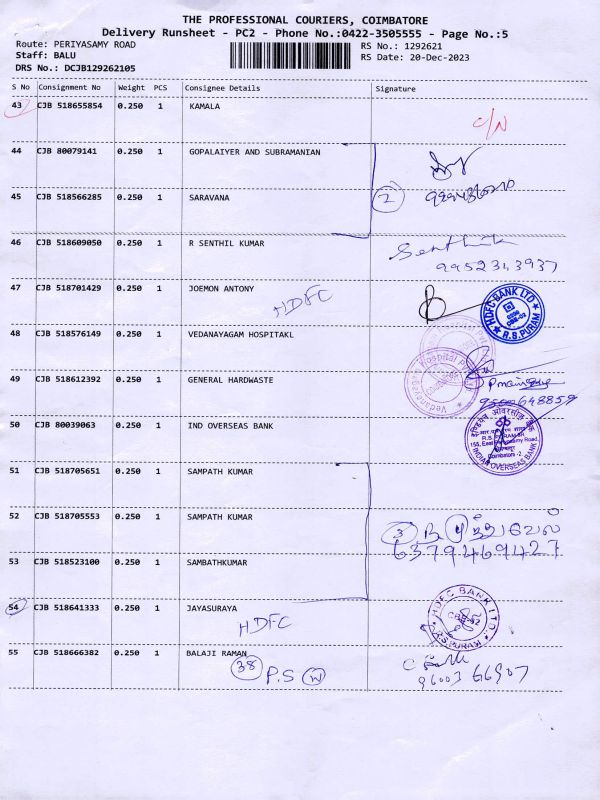 THE PROFESSIONAL COURIERS, COIMBATORE
Delivery Runsheet - PC2 - Phone No.:0422-3505555 - Page No.:5
Route: PERIYASAMY ROAD
RS No.: 1292621
Staff: BALU
RS Date: 20-Dec-2023
DRS No.: DCJB129262105
S No Consignment No Weight PCS Consignee Details Signature
43 CJB 518655854 0.250 1 KAMALA
C/N
44 CJB 80079141 0.250 1 GOPALAIYER AND SUBRAMANIAN
45 CJB 518566285 0.250 1 SARAVANA
2
46 CJB 518609050 0.250 1 R SENTHIL KUMAR
Senthil
9952313937
47 CJB 518701429 0.250 1 JOEMON ANTONY
HDFC
HDFC BANK LTD
R.S.PURAM
48 CJB 518576149 0.250 1 VEDANAYAGAM HOSPITAKL
49 CJB 518612392 0.250 1 GENERAL HARDWASTE
50 CJB 80039063 0.250 1 IND OVERSEAS BANK
INDIAN OVERSEAS BANK
51 CJB 518705651 0.250 1 SAMPATH KUMAR
52 CJB 518705553 0.250 1 SAMPATH KUMAR
3
6379469427
53 CJB 518523100 0.250 1 SAMBATHKUMAR
54 CJB 518641333 0.250 1 JAYASURAYA
HDFC
HDFC BANK LTD
R.S.PURAM
55 CJB 518666382 0.250 1 BALAJI RAMAN
38 P.S W
96003 66907